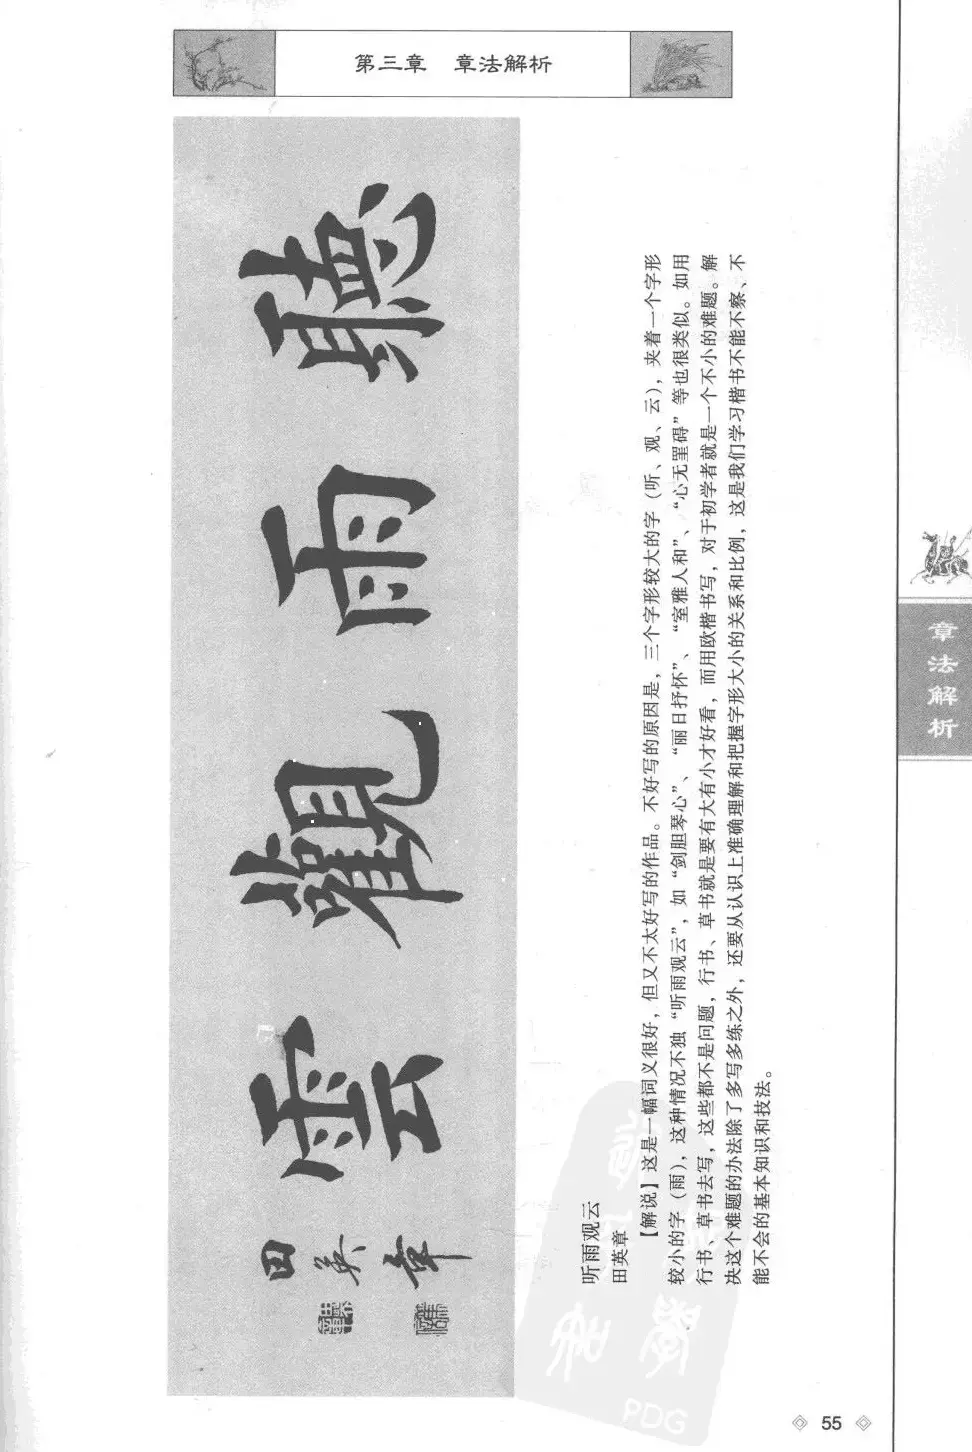 第三章 章法解析
聽雨觀雲
田英章
听雨观云
田英章
【解说】这是一幅词义很好，但又不太好写的作品。不好写的原因是，三个字形较大的字（听、观、云），夹着一个字形
较小的字（雨），这种情况不独“听雨观云”，如“剑胆琴心”、“丽日抒怀”、“室雅人和”、“心无罣碍”等也很类似。如用
行书、草书去写，这些都不是问题，行书、草书就是要有大有小才好看，而用欧楷书写，对于初学者就是一个不小的难题。解
决这个难题的办法除了多写多练之外，还要从认识上准确理解和把握字形大小的关系和比例，这是我们学习楷书不能不察、不
能不会的基本知识和技法。
章法解析
55
PDG